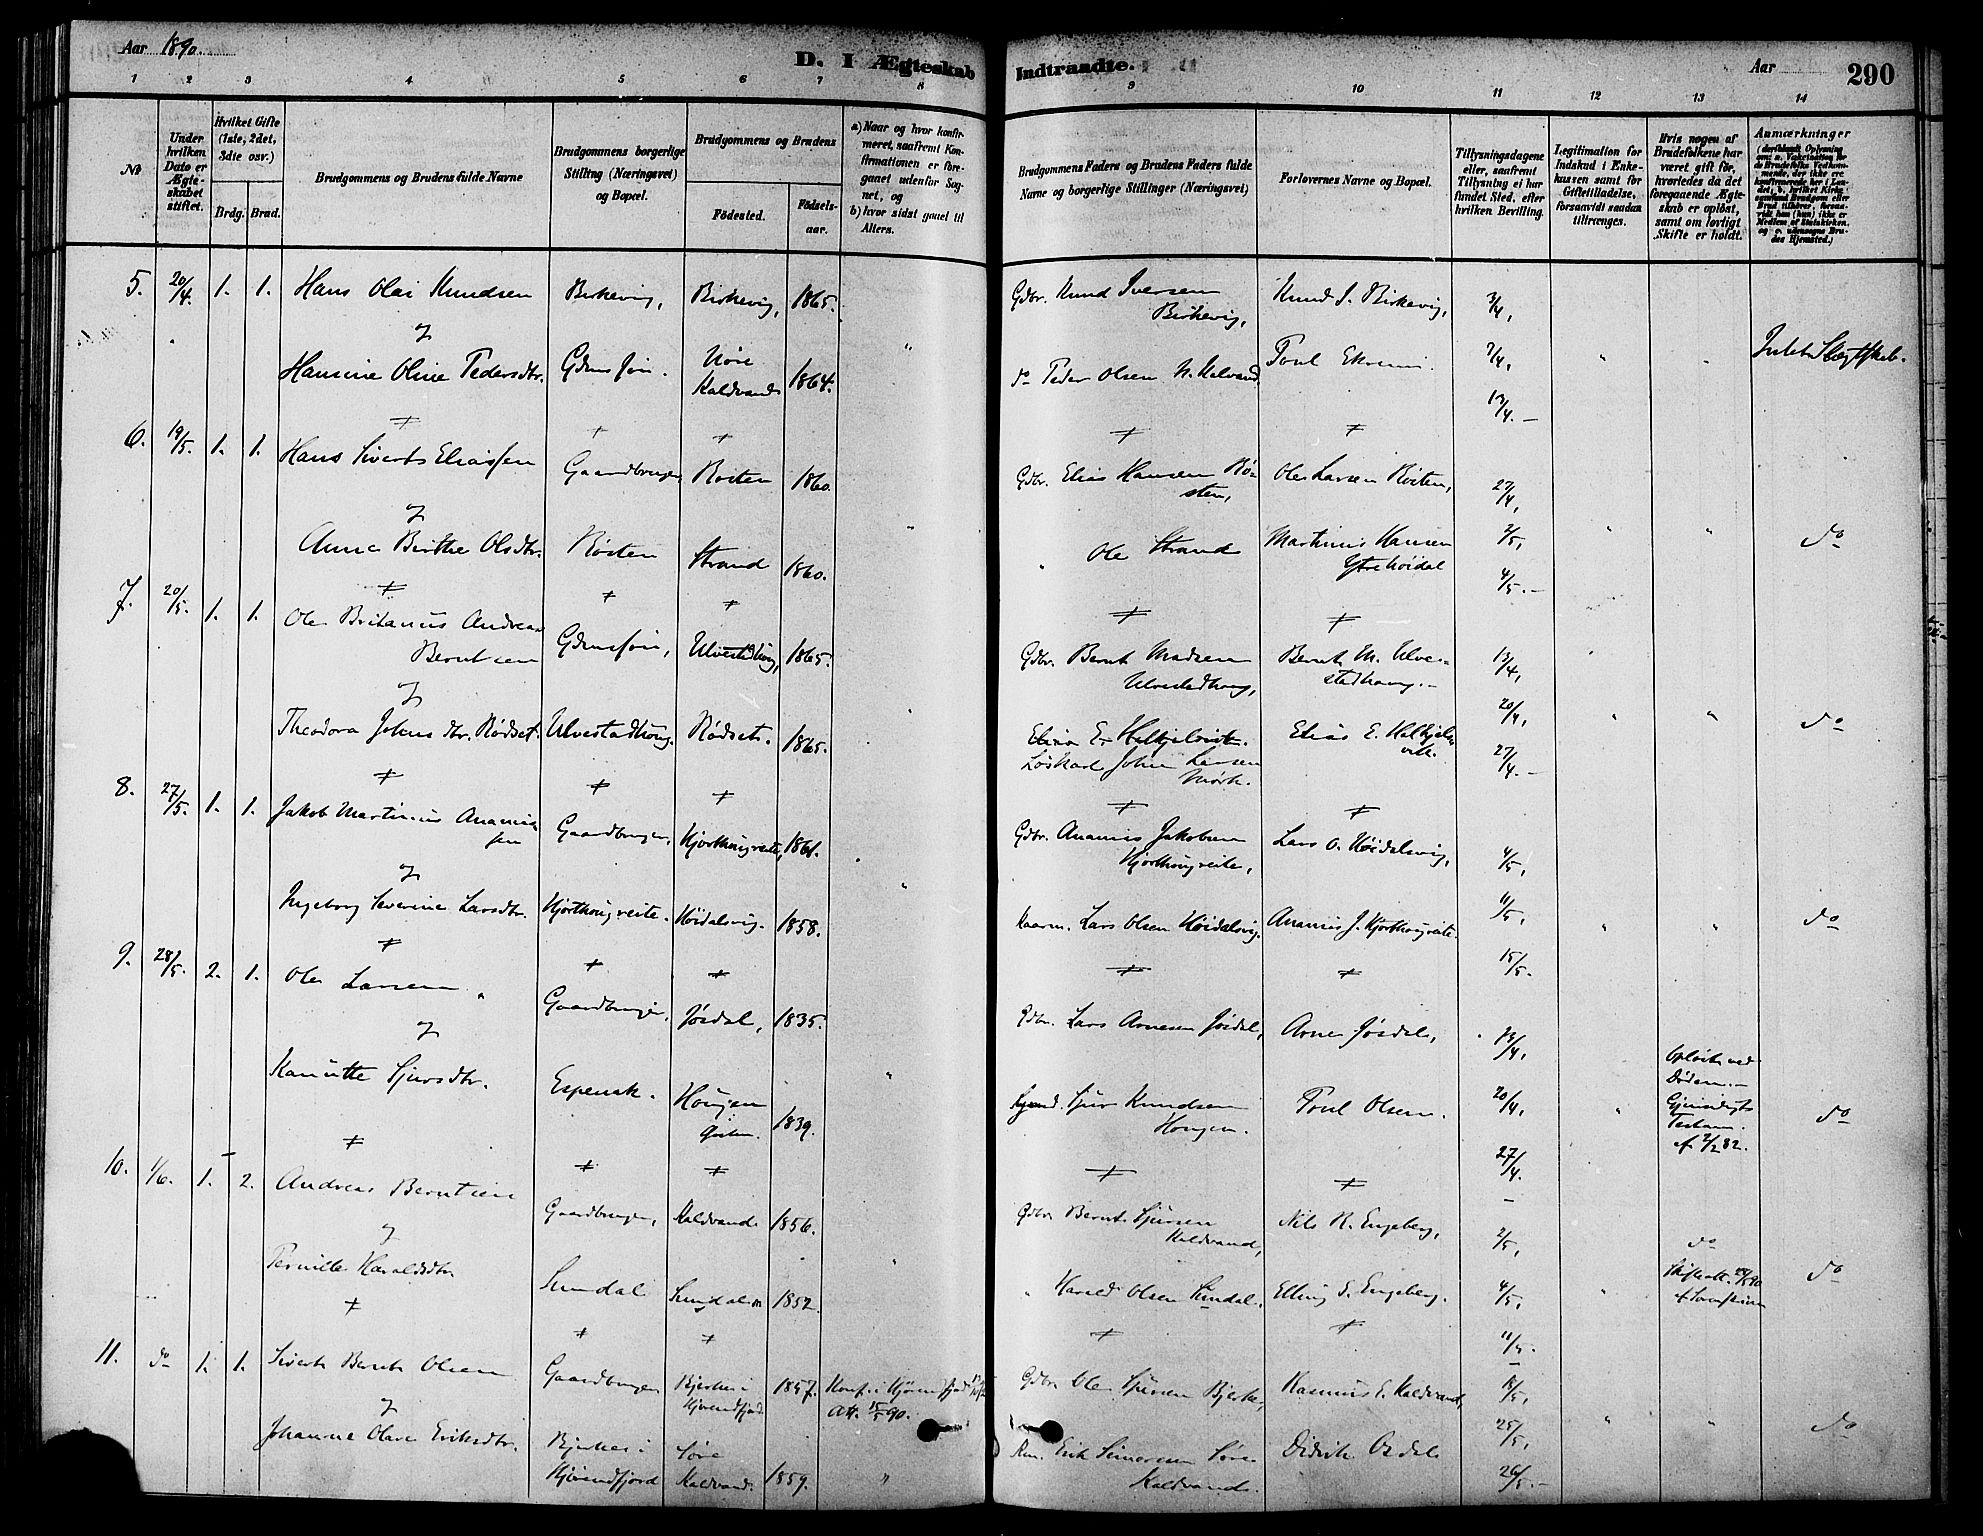 Aar 1890.
D. I Ægteskab Indtraadte.
Aar
290
1 2 3 4 5 6 7 8 9 10 11 12 13 14
№
Under hvilken Dato er Ægteskabet stiftet.
Hvilket Gifte (1ste, 2det, 3die osv.)
Brdg. Brud.
Brudgommens og Brudens fulde Navne
Brudgommens borgerlige Stilling (Næringsvei) og Bopæl.
Brudgommens og Brudens
Fødested.
Fødselsaar.
a) Naar og hvor konfirmeret, saafremt Konfirmationen er foregaaet udenfor Sognet, og
b) hvor sidst gaaet til Alters.
Brudgommens Faders og Brudens Faders fulde Navne og borgerlige Stillinger (Næringsvei)
Forlovernes Navne og Bopæl.
Tillysningsdagene eller, saafremt Tillysning ei har fundet Sted, efter hvilken Bevilling.
Legitimation for Indskud i Enkekassen samt for Giftetilladelse, forsaavidt saadan tiltrænges.
Hvis nogen af Brudefolkene har været gift før, hvorledes da det foregaaende Ægteskab er opløst, samt om lovligt Skifte er holdt.
Anmærkninger
5. 20/4. 1. 1. Hans Olai Knudsen Birkevig, Birkevig, 1865. Gdbr. Knud Iversen Birkevig, Knud I. Birkevig, 3/4,
Hansine Oline Pedersdtr. Gdmssøn. Nóre Kaldvand 1864. " do Peder Olsen N. Kalvand. Poul Ekrem. 7/4, 13/4.— " " Intet Slægtskab.
6. 19/5. 1. 1. Hans Siverts Eliassen Gaardbruger, Rösten 1860. Gdbr. Elias Hansen Rösten, Ole Larsen Rösten, 27/4,
Anne Birthe Olsdtr. Rösten Strand 1860. " " Ole Strand Martinus Hansen Ytre Höidal 2/5, 4/5.— " " do
7. 20/5. 1. 1. Ole Britanius Andreas Berntsen Gdmssøn, Ulvestadhoug, 1865. Gdbr. Bernt Madsen Ulvestadhoug, Bernt M. Ulvestadhoug.— 13/4,
Theodora Johnsdtr. Rödset. Ulvestadhoug. Rödset. 1865. " Elias E. Halkjelsvik. Löskarl John Larsen Mörk. Elias E. Halkjelsvik. 20/4, 27/4.— " " do
8. 27/5. 1. 1. Jakob Martinus Ananiassen Gaardbruger, Hjorthougreite, 1861. Gdbr. Ananias Jakobsen Hjorthougreite, Lars O. Höidalsvig, 4/5,
Ingeborg Severine Larsdtr. Hjorthougreite. Höidalsvig. 1858. " Kaarm. Lars Olsen Höidalsvig. Ananias J. Hjorthougreite. 11/5, 15/5. " " do
9. 28/5. 2. 1. Ole Larsen Gaardbruger, Jósdal, 1835. Gdbr. Lars Arnesen Jósdal, Arne Jósdal, 13/4,
Kanutte Sjursdtr. Espenak. Hougen 1839. " Sjur Knudsen Hougen. Poul Olsen. 20/4, 27/4. " Oplöst ved Döden.— Gjensidigt Testam. af 2/2 82. do
10. 1/6. 1. 2. Andreas Berntsen Gaardbruger, Kaldvand 1856. Gdbr. Bernt Sjursen Kaldvand, Nils R. Engeberg, 2/5,
Pernille Haraldsdtr. Sundal Sundal 1852. " " Harald Olsen Sundal. Elling S. Engeberg. 4/5, 11/5. " do do
11. do 1. 1. Sivert Bernt Olsen Gaardbruger Bjerke i Hjörendfjord 1857. Konf. i Hjörendfjord Att. 15/5 90. Gdbr. Ole Sjursen Bjerke, Rasmus E. Kaldvand, 18/5,
Johanne Olave Eriksdtr. Bjerke i Hjörendfjord Söre Kaldvand. 1859. " Erik Söre Kaldvand. Didrik Osdal 25/5, 26/5.— " " do